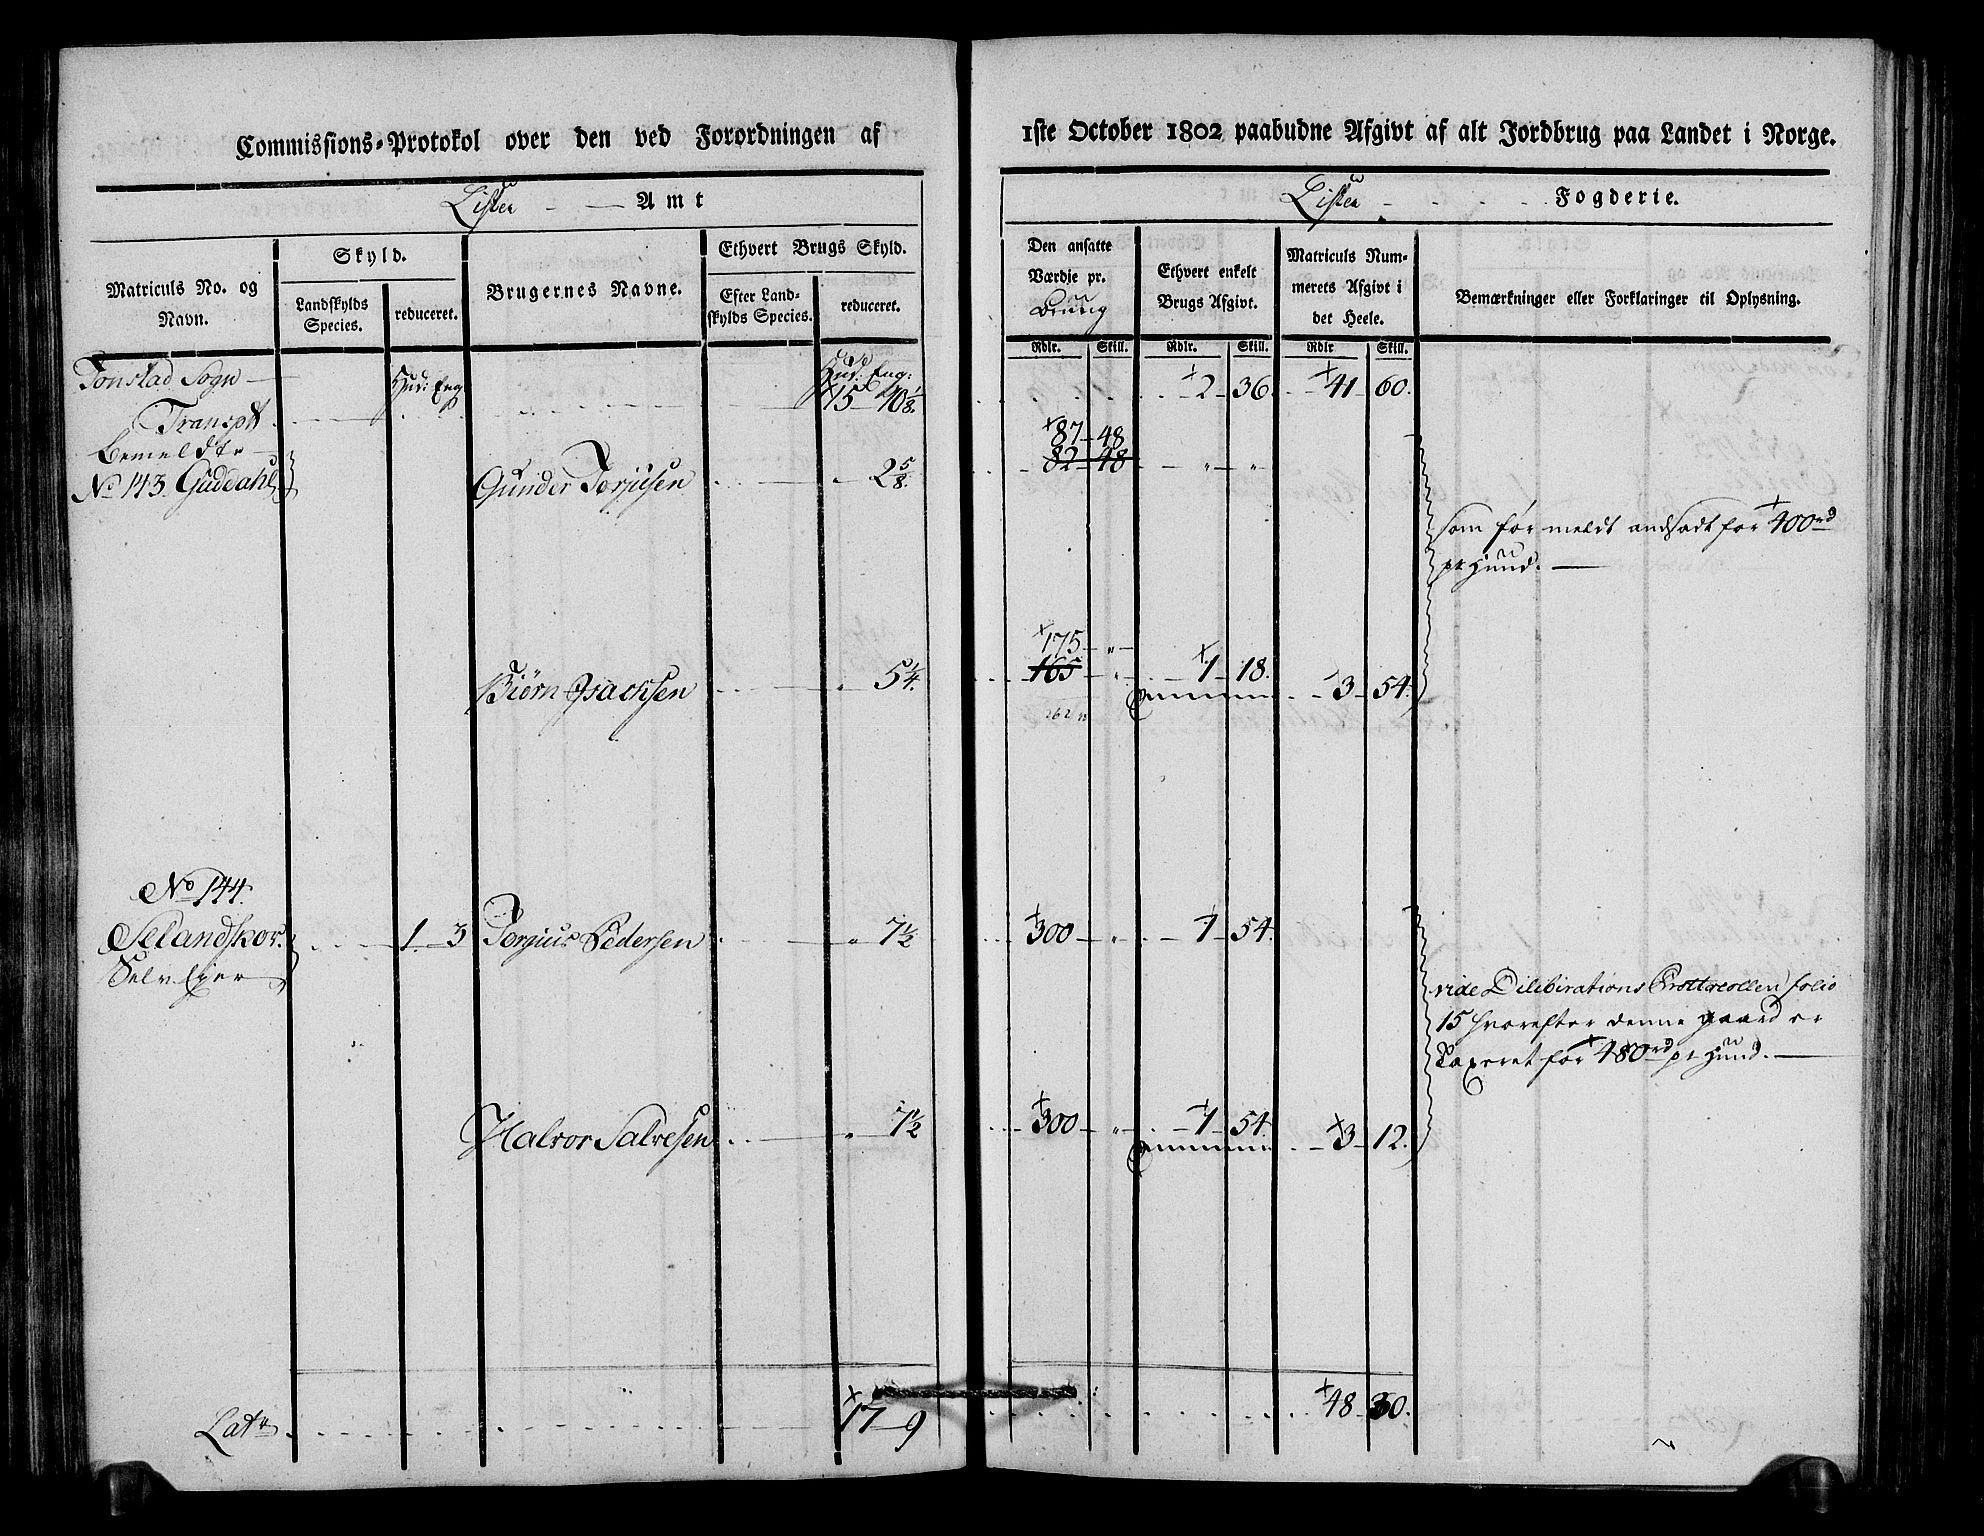 Commissions-Protokol over den ved Forordningen af
1ste October 1802 paabudne Afgivt af alt Jordbrug paa Landet i Norge.
Lister Amt
Lister Fogderie.
Matriculs No. og Navn.
Skyld.
Landskylds Species.
reduceret.
Brugernes Navne.
Ethvert Brugs Skyld.
Efter Landskylds Species.
reduceret.
Den ansatte Værdje pr. Bruug
Ethvert enkelt Brugs Afgivt.
Matriculs Nummerets Afgivt i det Heele.
Bemærkninger eller Forklaringer til Oplysning.
Rdlr. Skill. Rdlr. Skill. Rdlr Skill.
Tonstad Sogn Hud: Eng Hud: Eng:
Transpt 15 10 1/8. 2 36. 41 60.
Bemeldte 87 48
No 143. Guddahl Gunder Torjusen 2 5/8. 82 48 " "
som før meldt andsadt for 400rd
pr Huud.
175 "
Biørn Isachsen " 5 1/4. 165 " 1 18. 3 54.
262
No 144.
Selandskor. 1 3 Torgius Pedersen " 7 1/2 300 " 1 54.
Selv Ejer
vide Dilibirations Prottocollen folio
15 hvorefter denne gaard er
Taxeret for 480rd pr Huud.
Halvor Salvesen " 7 1/2 300 " 1 54. 3 12.
Latr 17 9 48 30.